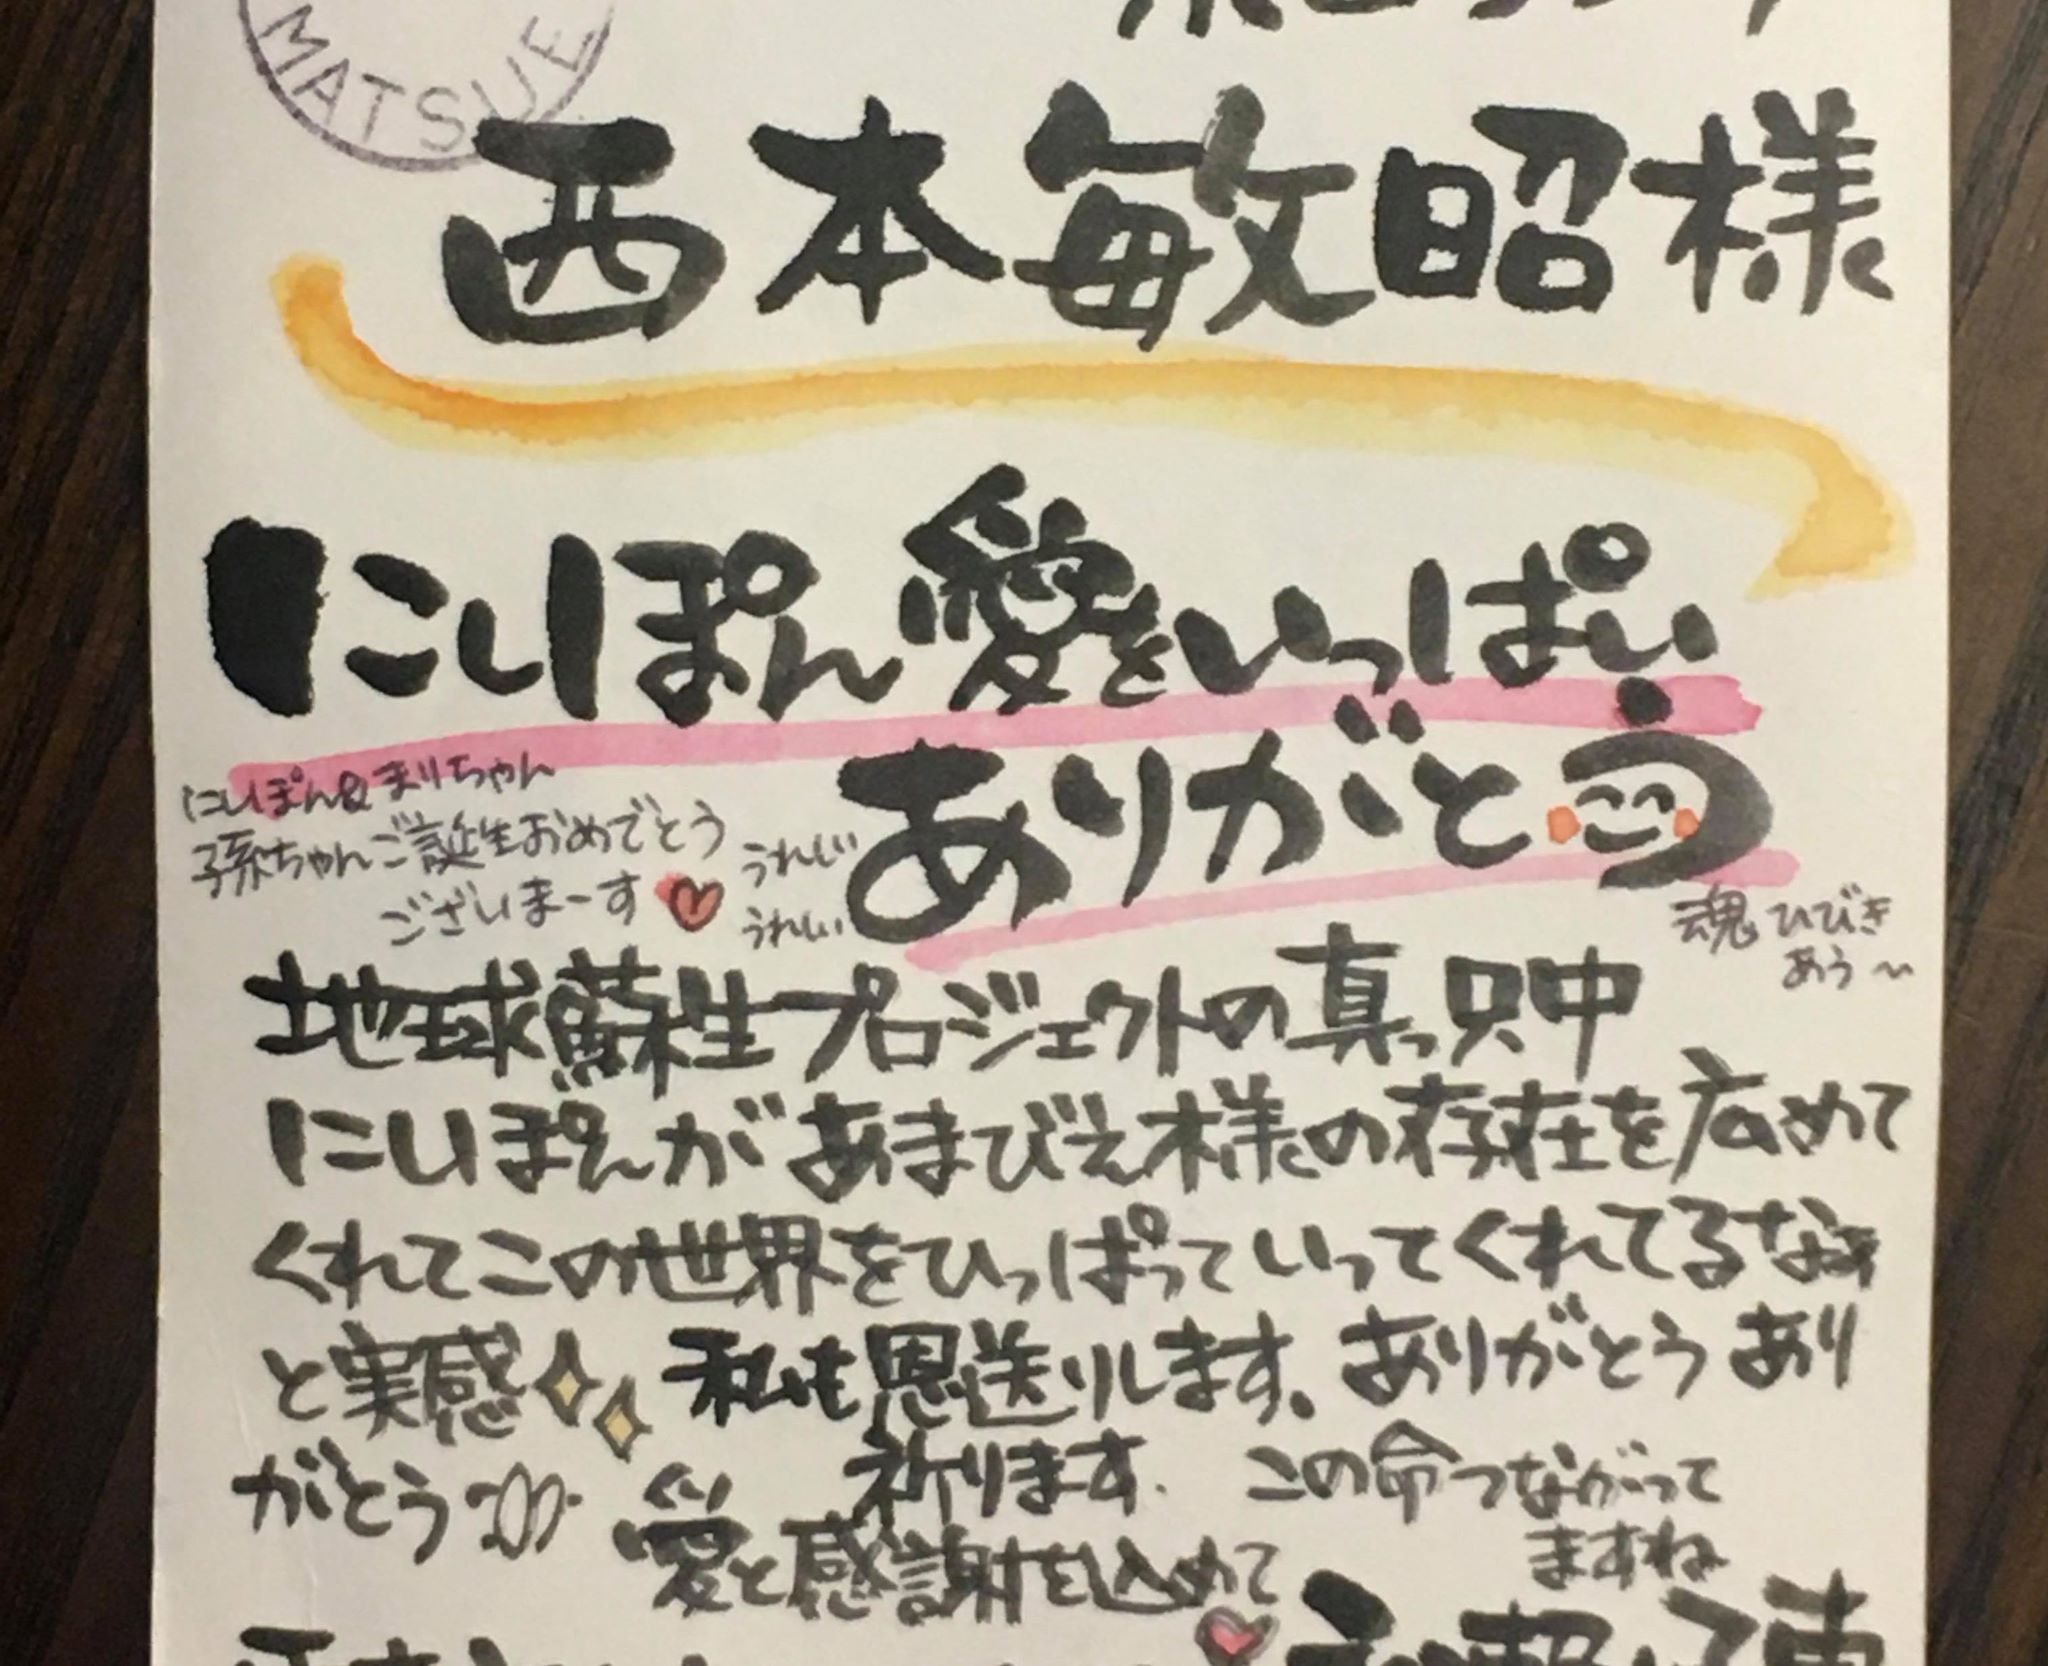 MATSUE
西本敏昭様
にしぽん愛をいっぱい
ありがとう
にしぽん&まりちゃん
孫ちゃんご誕生おめでとう
ございまーす
うれしい
うれしい
魂ひびき
あう〜
地球蘇生プロジェクトの真っ只中
にしぽんがあまびえ様の存在を広めて
くれてこの世界をひっぱっていってくれてるなぁ
と実感 私も恩送りします。ありがとうあり
がとう 祈ります.
愛と感謝を込めて
この命つながって
ますね